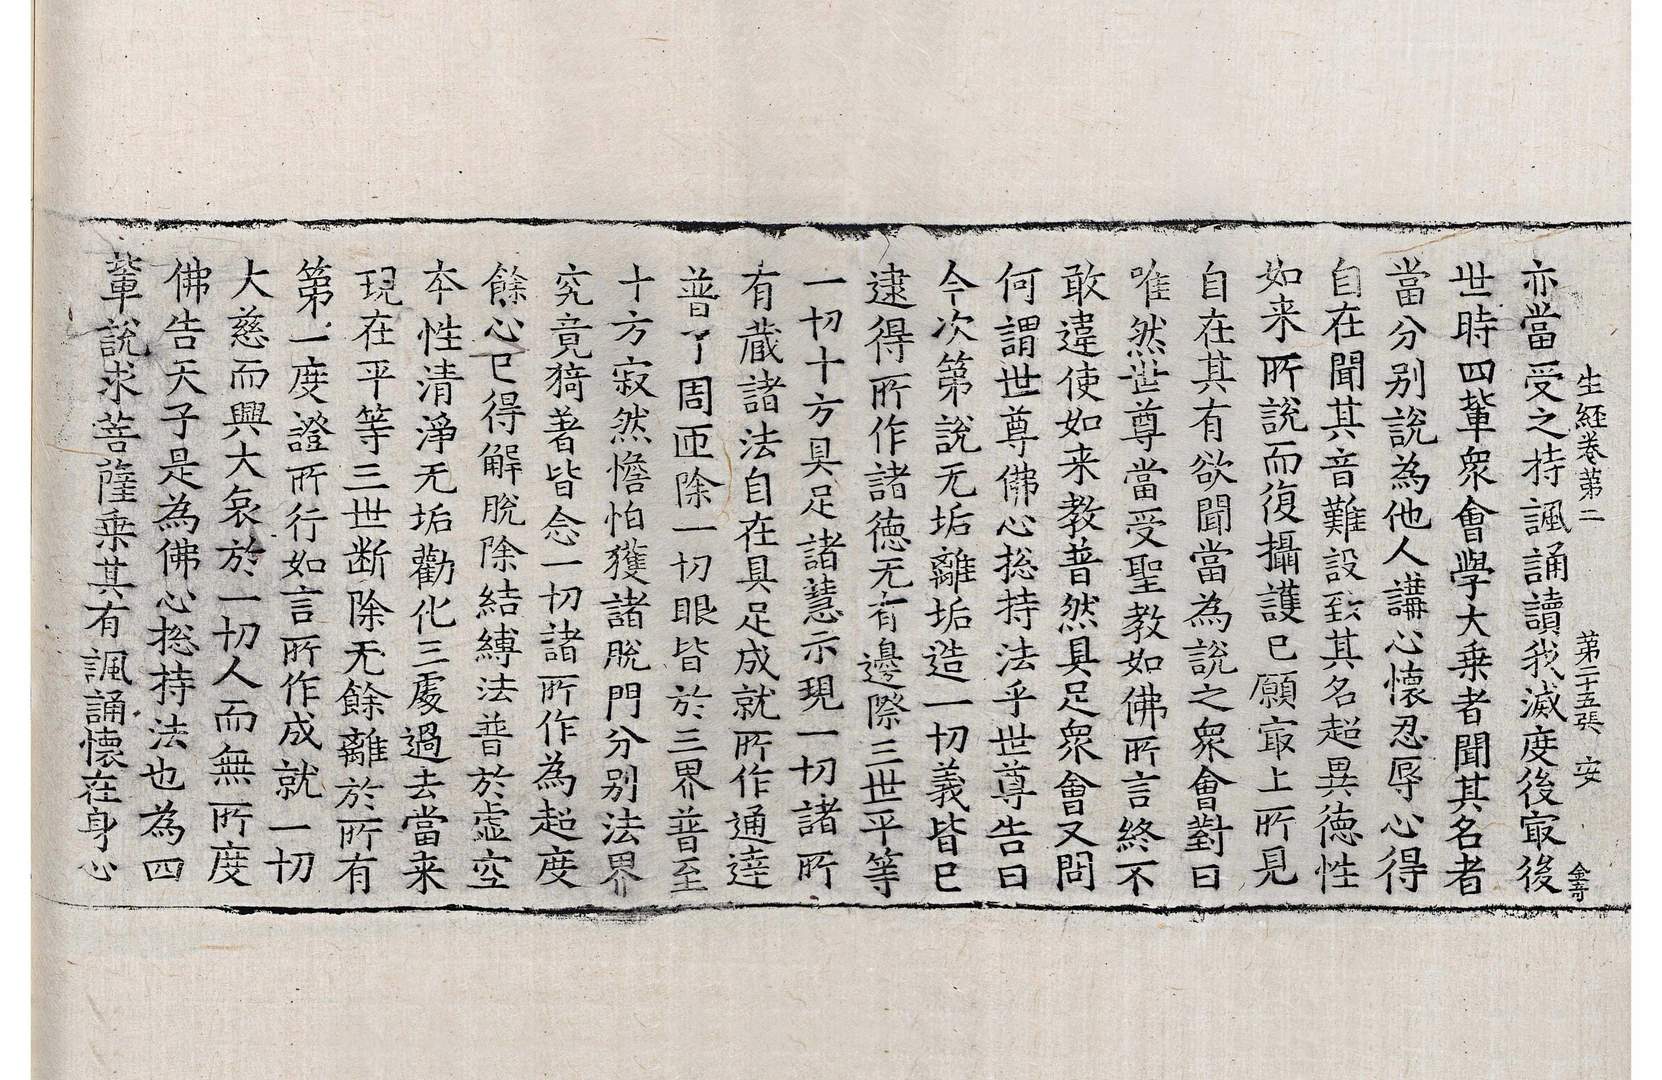 生經卷第二　第二十五張　安　金哥
亦當受之持諷誦讀我滅度後㝡後
世時四輩衆會學大乘者聞其名者
當分别說為他人講心懷忍辱心得
自在聞其音難設致其名超異德性
如来所說而復攝護已願㝡上所見
自在其有欲聞當為說之衆會對曰
唯然世尊當受聖教如佛所言終不
敢違使如来教普然具足衆會又問
何謂世尊佛心揔持法乎世尊告曰
今次第說无垢離垢造一切義皆已
逮得所作諸德无有邊際三世平等
一切十方具足諸慧示現一切諸所
有藏諸法自在具足成就所作通達
普了周匝除一切眼皆於三界普至
十方寂然憺怕獲諸脫門分别法界
究竟猗著皆念一切諸所作為超度
餘心已得解脫除結縛法普於虛空
本性清淨无垢勸化三處過去當来
現在平等三世断除无餘離於所有
第一度證所行如言所作成就一切
大慈而興大哀於一切人而無所度
佛告天子是為佛心揔持法也為四
輩說求菩薩乘其有諷誦懷在身心